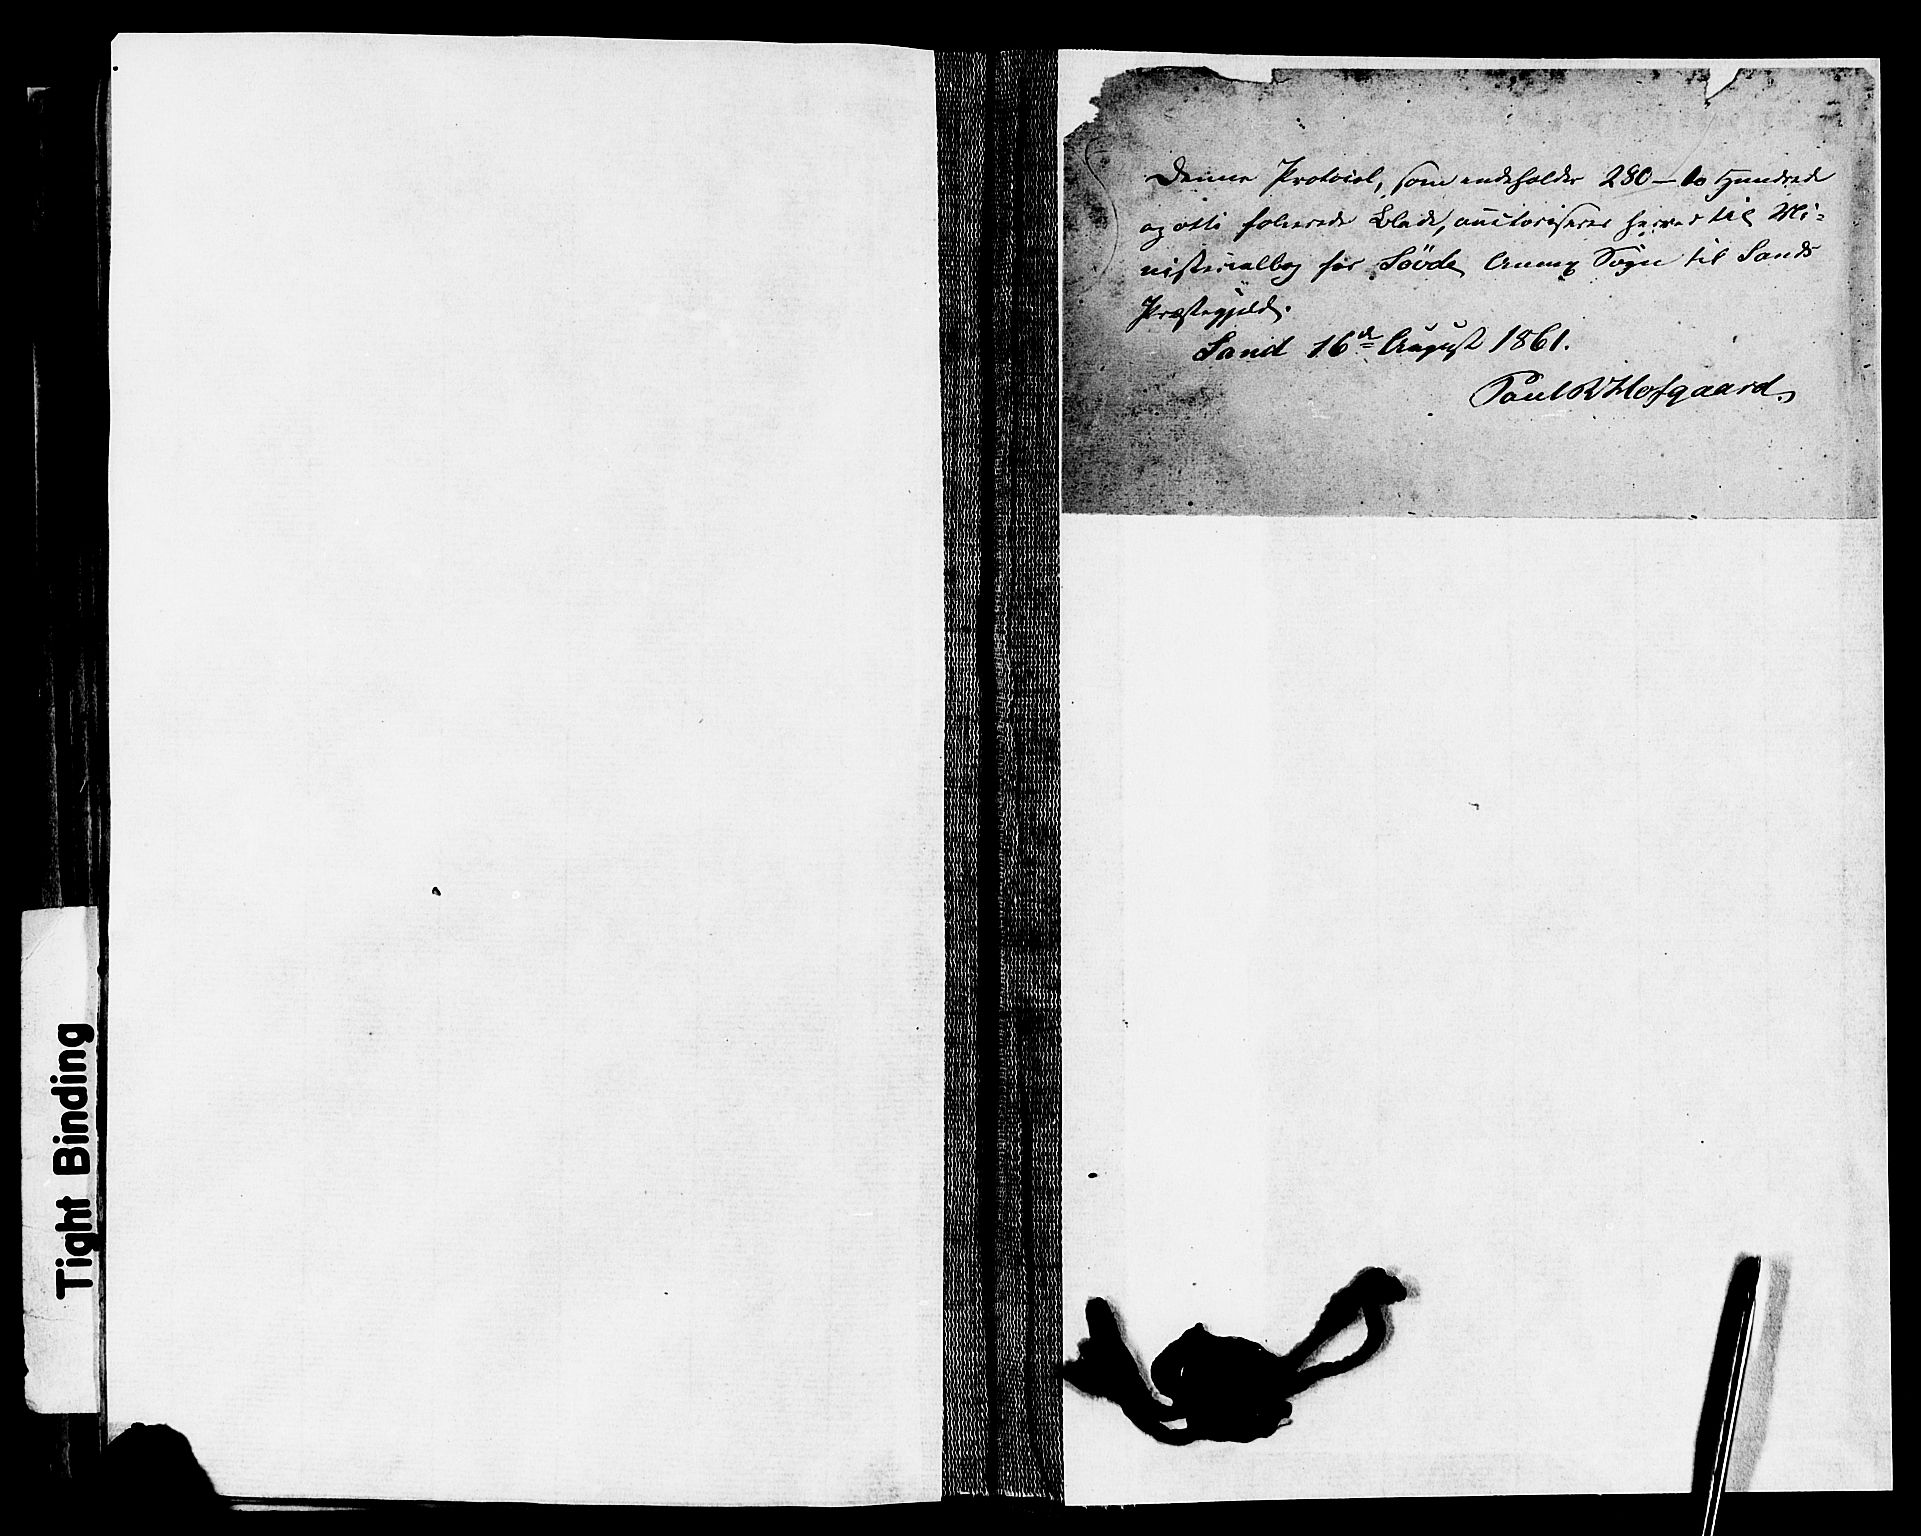 Denne Protocol, som indeholder 280 – to Hundrede
og otti folierede Blade, auctoriseres herved til Mi=
nisterialbog for Sövde Annex Sogn til Sands
Præstegjeld.
Sand 16de August 1861.
Paul R Hofgaard.
Tight Binding